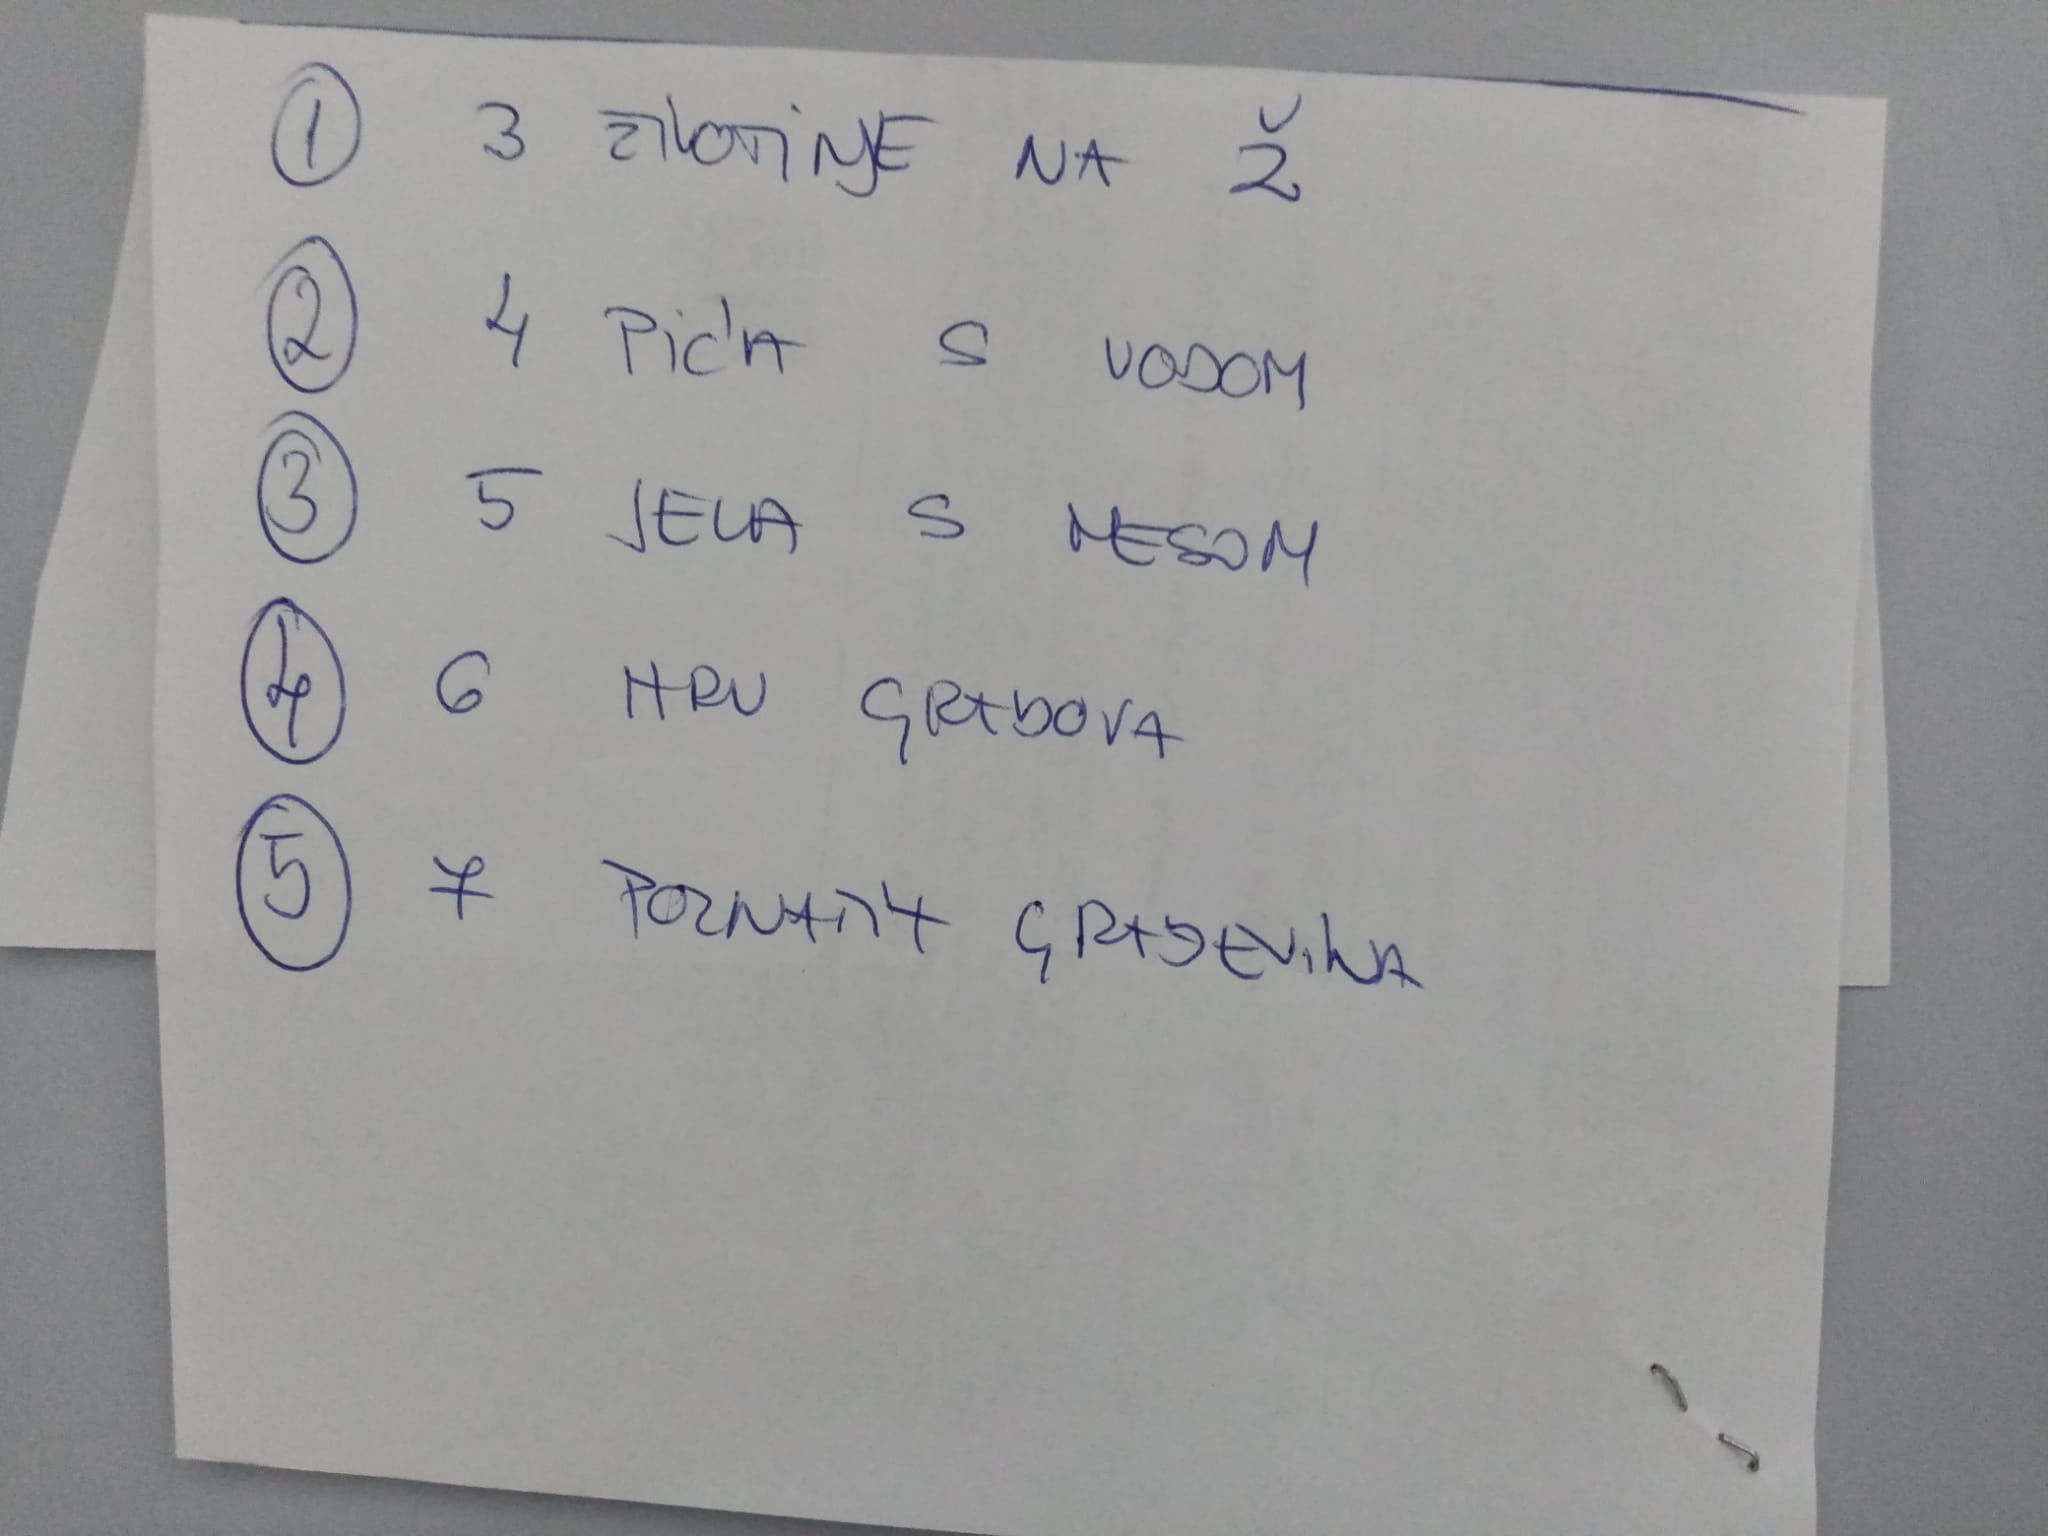 ① 3 ŽIVOTINJE NA Ž
② 4 PIĆA S VODOM
③ 5 JELA S MESOM
④ 6 HRV GRADOVA
⑤ 7 POZNATIH GRAĐEVINA